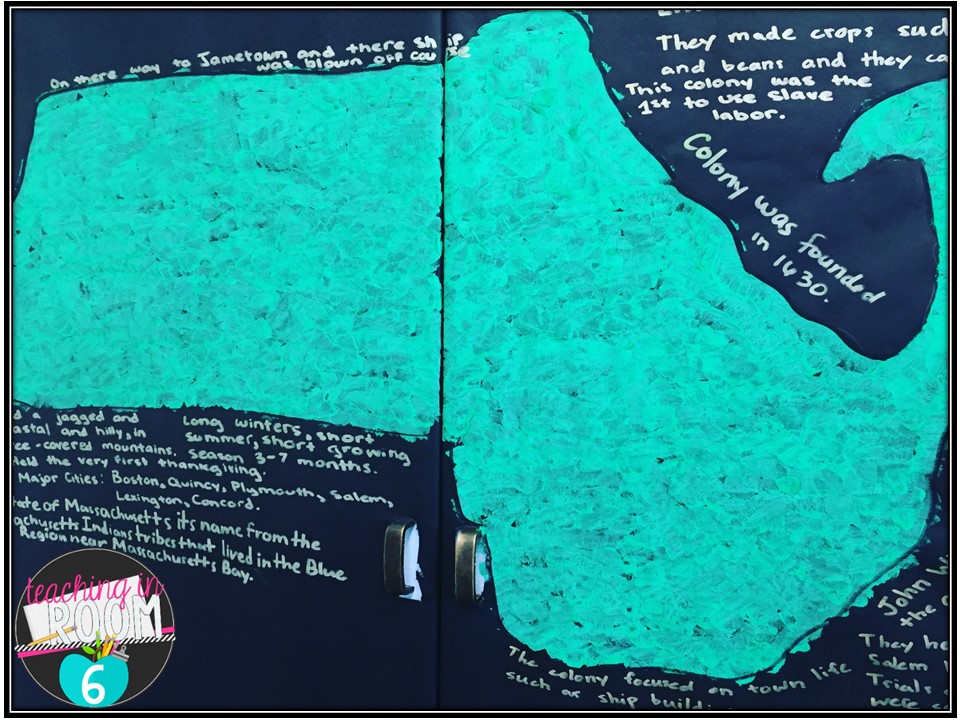 On there way to Jametown and there ship
was blown off course
They made crops such
and beans and they ca
This colony was the
1st to use slave
labor.
Colony was founded
in 1630.
d a jagged and
astal and hilly, in
ee-covered mountains.
held the very first thanksgiving.
Long winters, short
summer, short growing
season 3-7 months.
Major Cities: Boston, Quincy, Plymouth, Salem,
Lexington, Concord.
tate of Massachusetts its name from the
achusetts Indians tribes that lived in the Blue
Region near Massachusetts Bay.
The colony focused on town life
such as ship build.
John Wi
the
They he
Salem
Trials
were c
teaching in
ROOM
6